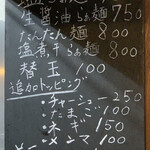 生醤油らぁ麺 750
たんたん麺 800
塩煮干らぁ麺 800
替玉 100
追加トッピング
・チャーシュー 250
・たまご 100
・ネギ 150
・メンマ 100